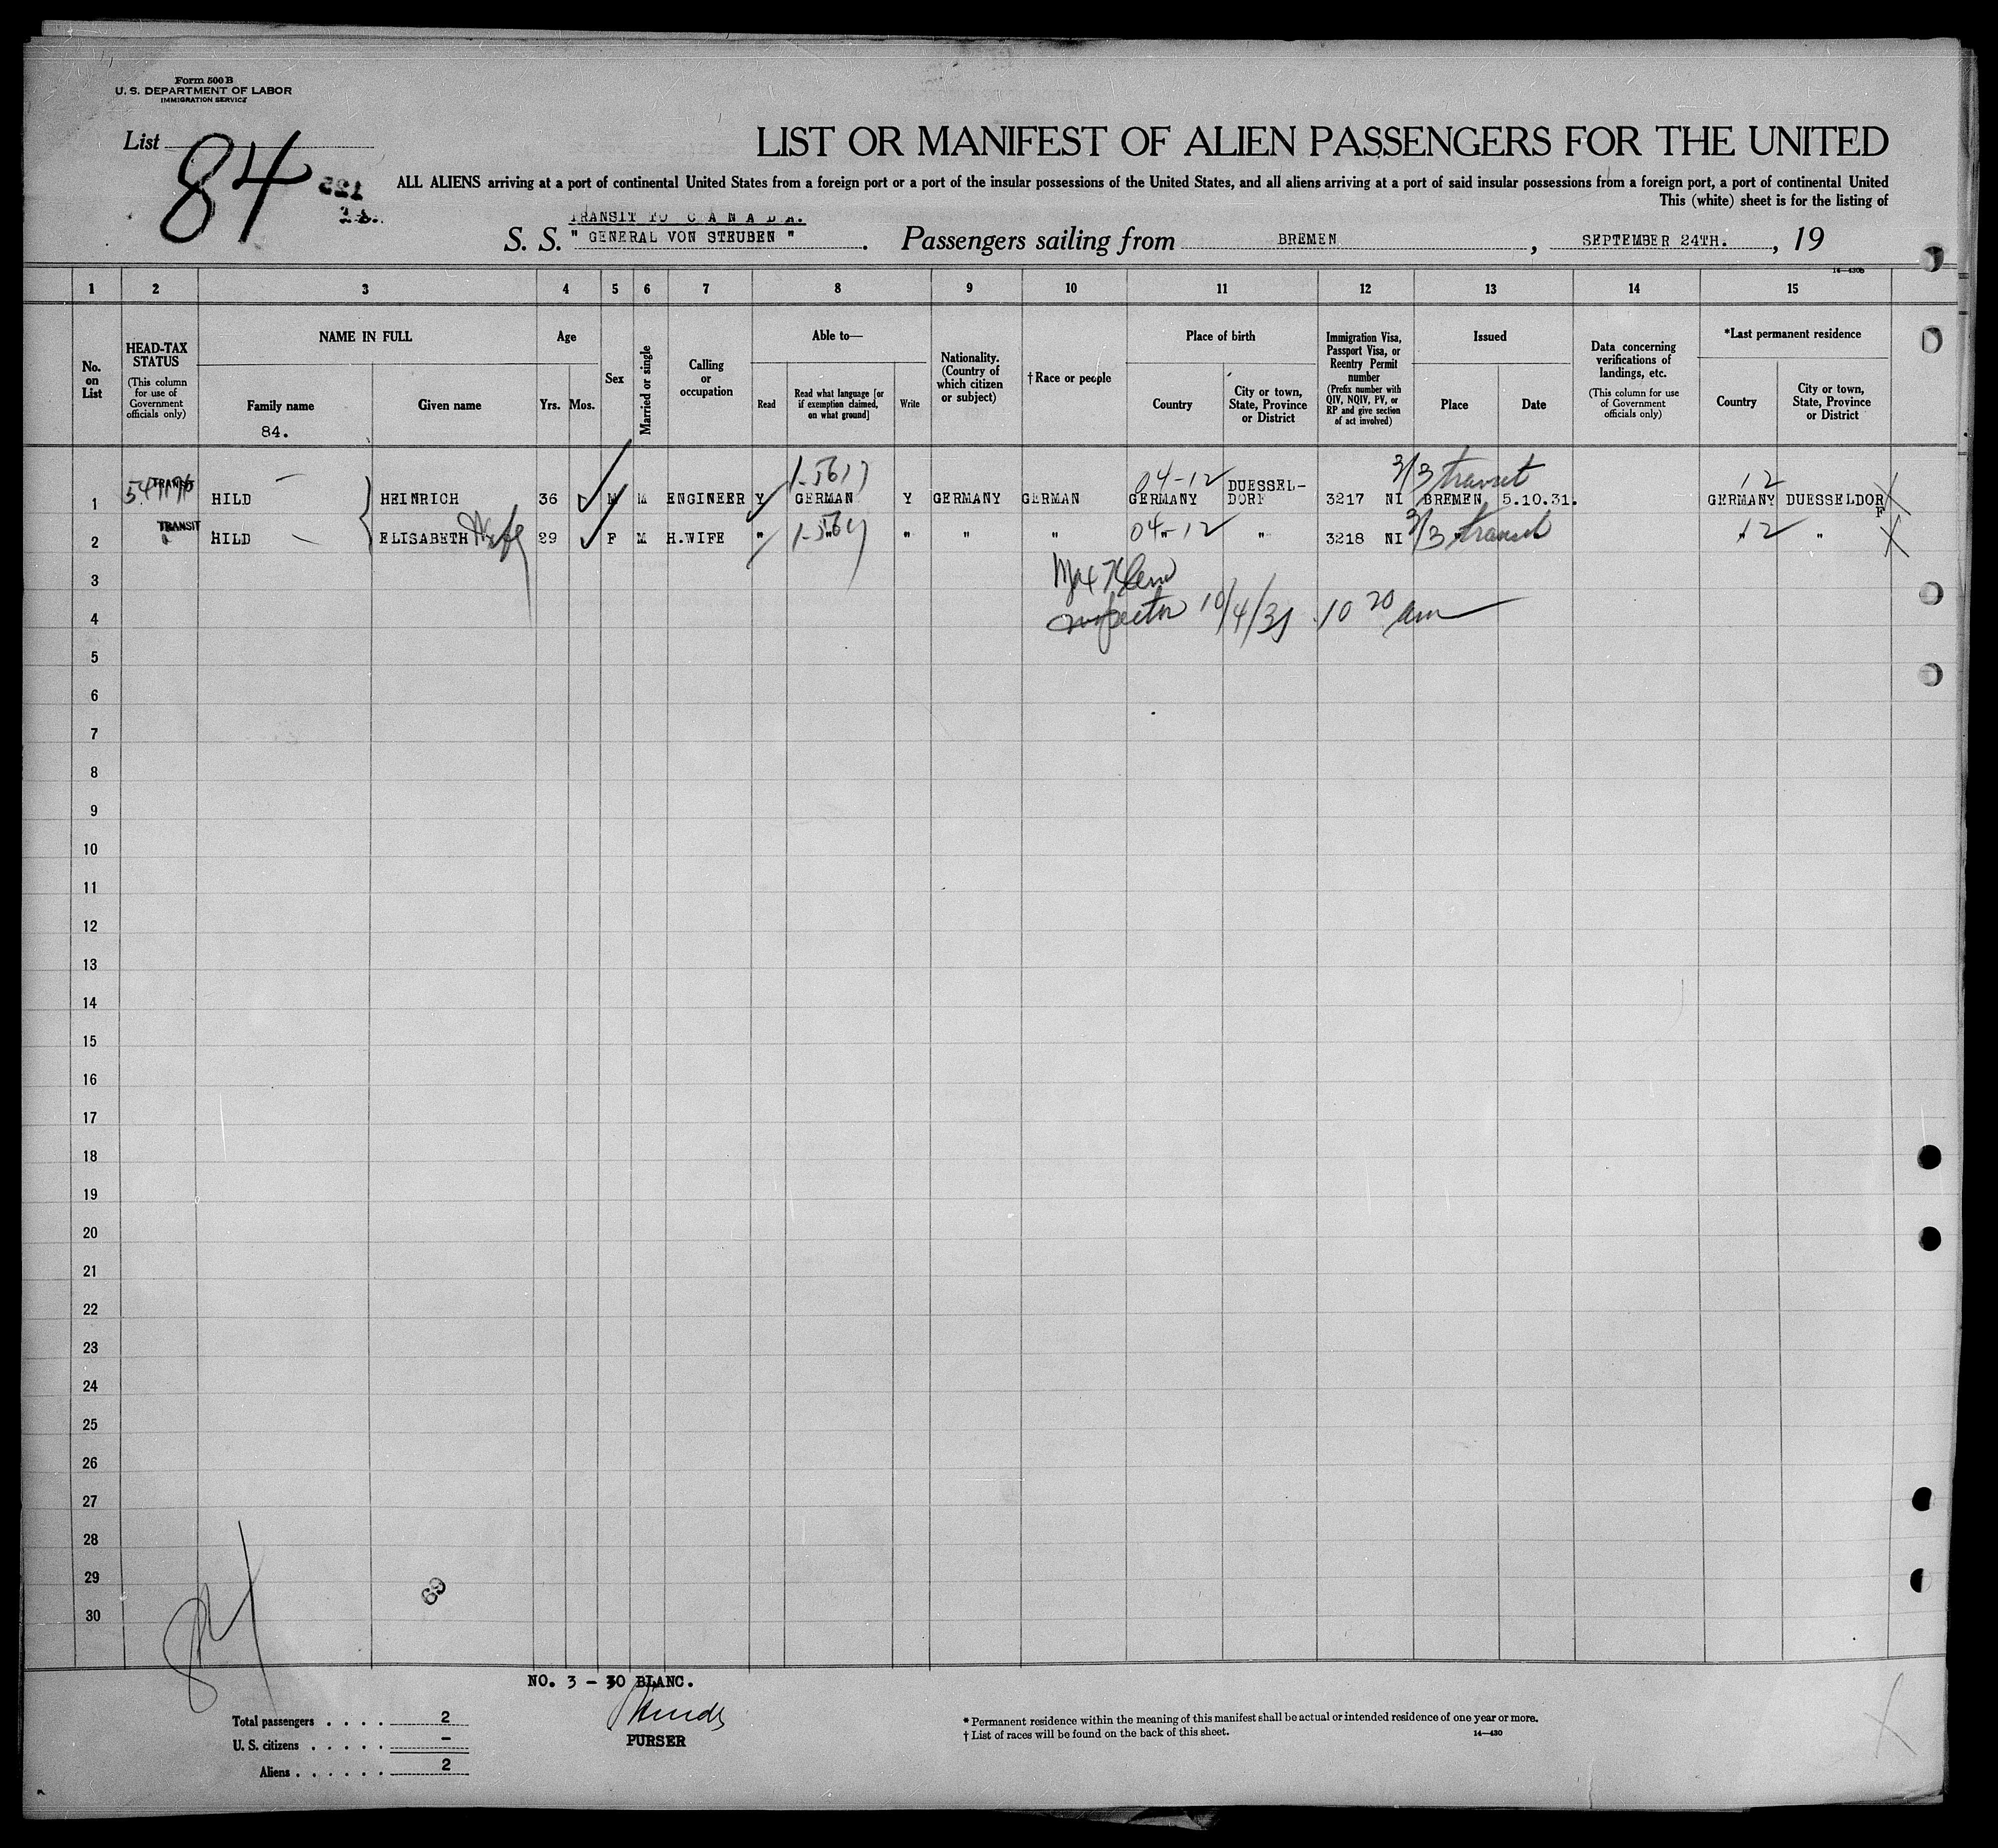 Form 500 B
U. S. DEPARTMENT OF LABOR
IMMIGRATION SERVICE
List 84
LIST OR MANIFEST OF ALIEN PASSENGERS FOR THE UNITED
ALL ALIENS arriving at a port of continental United States from a foreign port or a port of the insular possessions of the United States, and all aliens arriving at a port of said insular possessions from a foreign port, a port of continental United
This (white) sheet is for the listing of
TRANSIT TO C A N A D A.
S. S. " GENERAL VON STEUBEN " . Passengers sailing from BREMEN , SEPTEMBER 24TH. , 19
14—430B
1 2 3 4 5 6 7 8 9 10 11 12 13 14 15
No. on List
HEAD-TAX STATUS
(This column for use of Government officials only)
NAME IN FULL
Family name
84.
Given name
Age
Yrs. Mos.
Sex
Married or single
Calling or occupation
Able to—
Read
Read what language [or if exemption claimed, on what ground]
Write
Nationality. (Country of which citizen or subject)
†Race or people
Place of birth
Country
City or town, State, Province or District
Immigration Visa, Passport Visa, or Reentry Permit number
(Prefix number with QIV, NQIV, PV, or RP and give section of act involved)
Issued
Place
Date
Data concerning verifications of landings, etc.
(This column for use of Government officials only)
*Last permanent residence
Country
City or town, State, Province or District
04-12 3/3 transit 12
1 TRANSIT HILD HEINRICH 36 M M ENGINEER Y GERMAN Y GERMANY GERMAN GERMANY DUESSEL-DORF 3217 NI BREMEN 5.10.31. GERMANY DUESSELDORF
04-12 3/3 transit 12
2 TRANSIT HILD ELISABETH Wife 29 F M H.WIFE " " " " " " " 3218 NI " " "
3
4 Inspector 10/4/31 10 20 am
5
6
7
8
9
10
11
12
13
14
15
16
17
18
19
20
21
22
23
24
25
26
27
28
29
30
84
69
NO. 3 – 30 BLANC.
PURSER
Total passengers . . . . 2
U. S. citizens . . . . . –
Aliens . . . . . . 2
* Permanent residence within the meaning of this manifest shall be actual or intended residence of one year or more.
† List of races will be found on the back of this sheet.
14—430